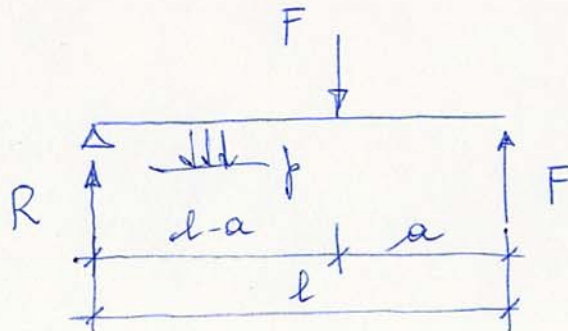 F
p
R
F
l-a
a
l